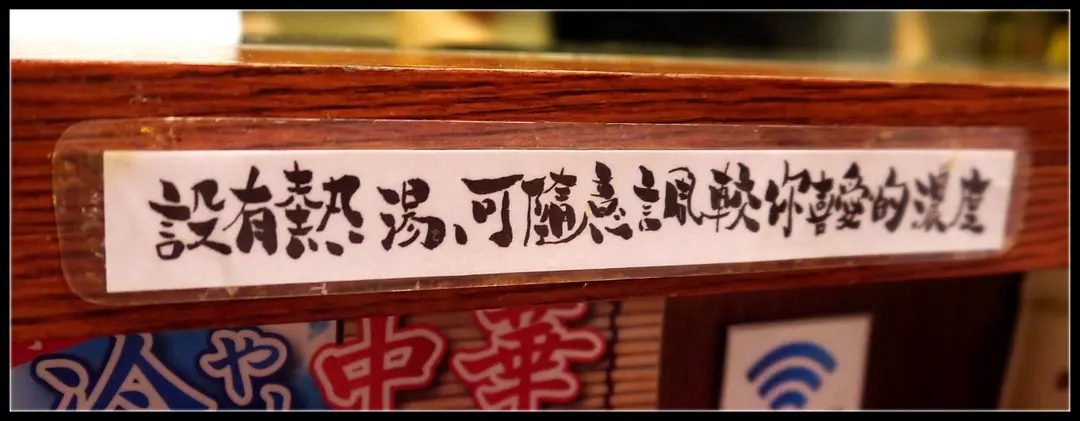 設有熱湯、可隨意調較你喜愛的濃度
冷やし中華